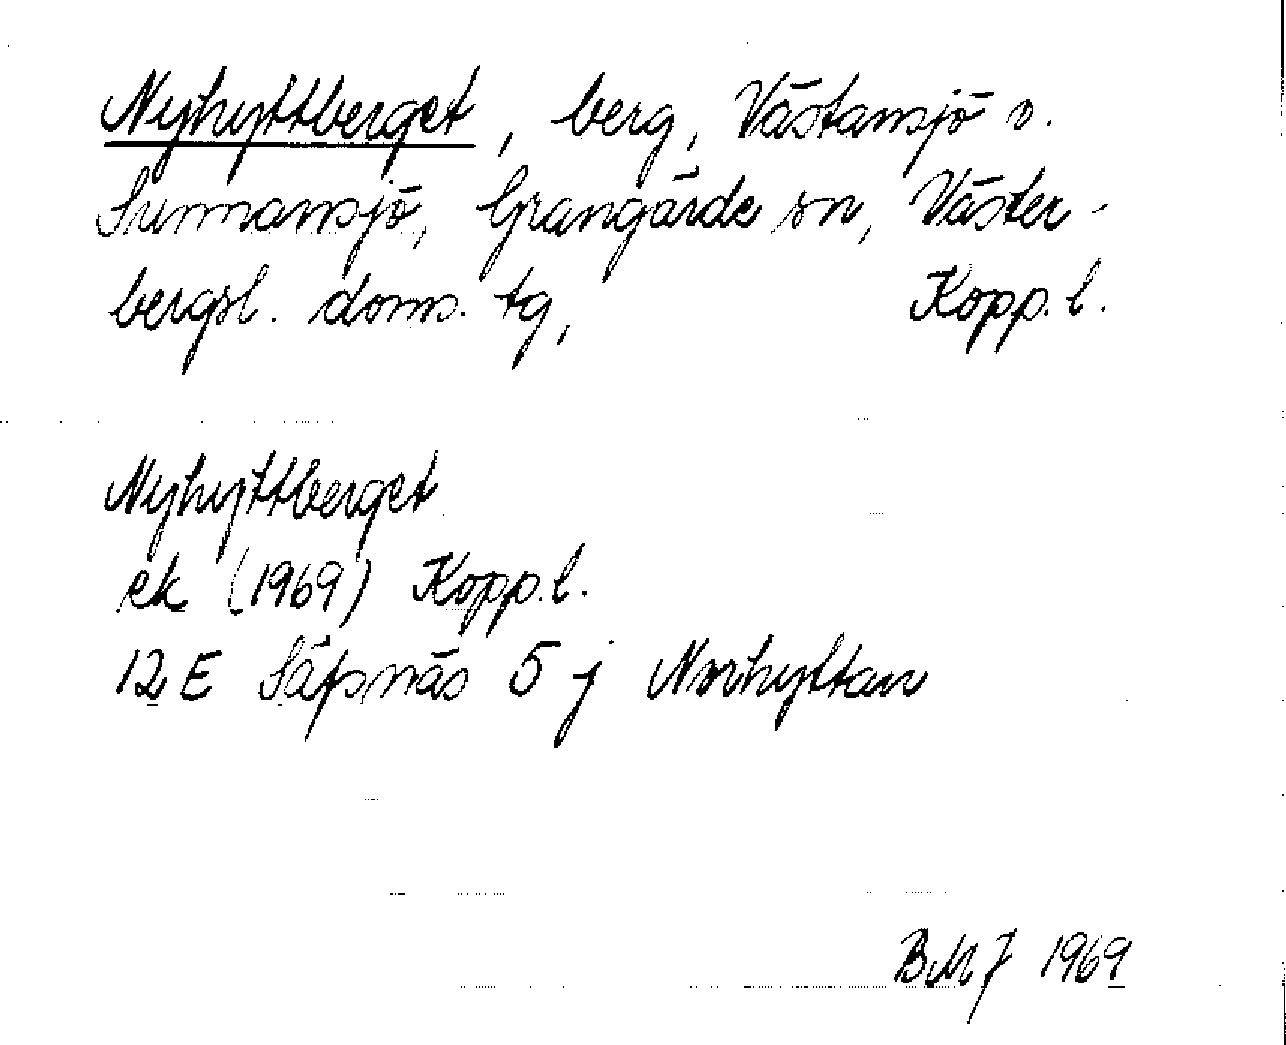 Nyhyttberget, berg, Västansjö o.
Sunnansjö, Grangärde sn, Väster-
bergsl. doms. tg, Kopp. l.
Nyhyttberget
ek (1969) Kopp. l.
12 E Säfsnäs 5 j Norhyttan
BMJ 1969